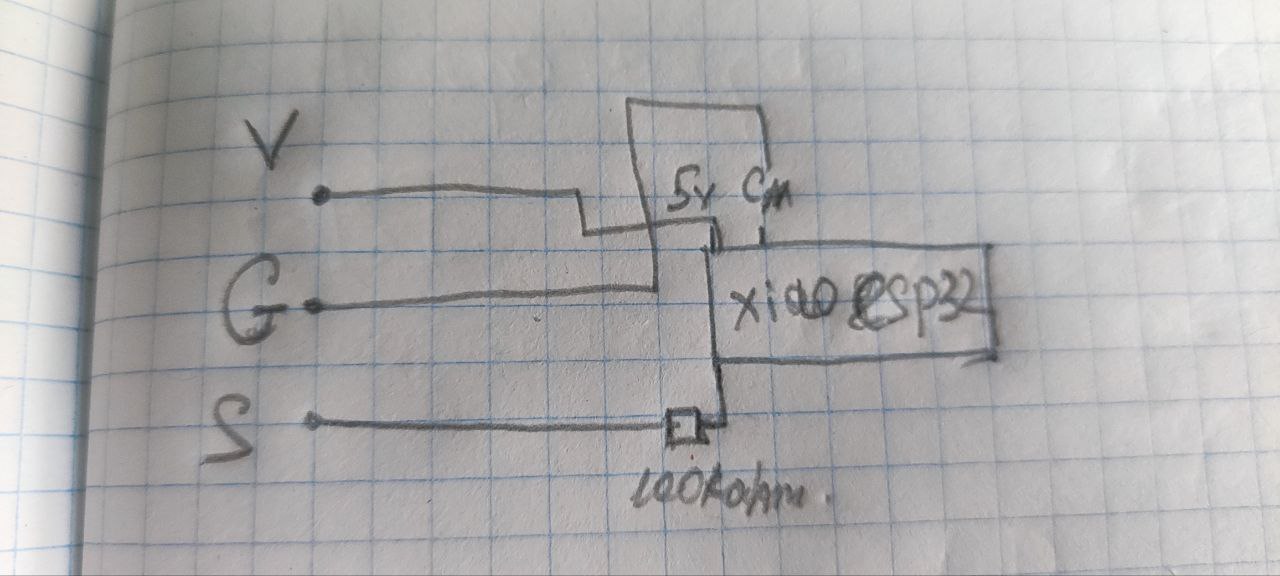 V
5v Gn
G
xiao esp32
S
100kohm.